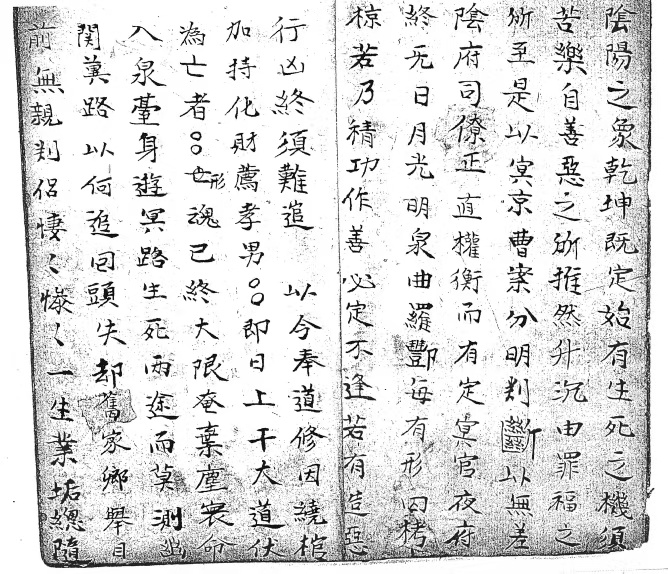 陰陽之象乾坤既定始有生死之機須
苦樂自善惡之所推然升沉由罪福之
所至是以冥京曹案分明判斷以無差
陰府司僚正直權衡而有定冥官夜府
終无日月光明泉曲羅酆每有形囚拷
椋若乃精功作善必定不逢若有造惡
行凶終須難逭　以今奉道修因繞棺
加持化財薦孝男○○即日上干大道伏
為亡者○○也形魂已終大限奄棄塵寰命
入泉臺身遊冥路生死兩途而莫測幽
関冀路以何追回頭失却舊家鄉舉目
前無親判侣悽〻慘〻一生業垢總隨